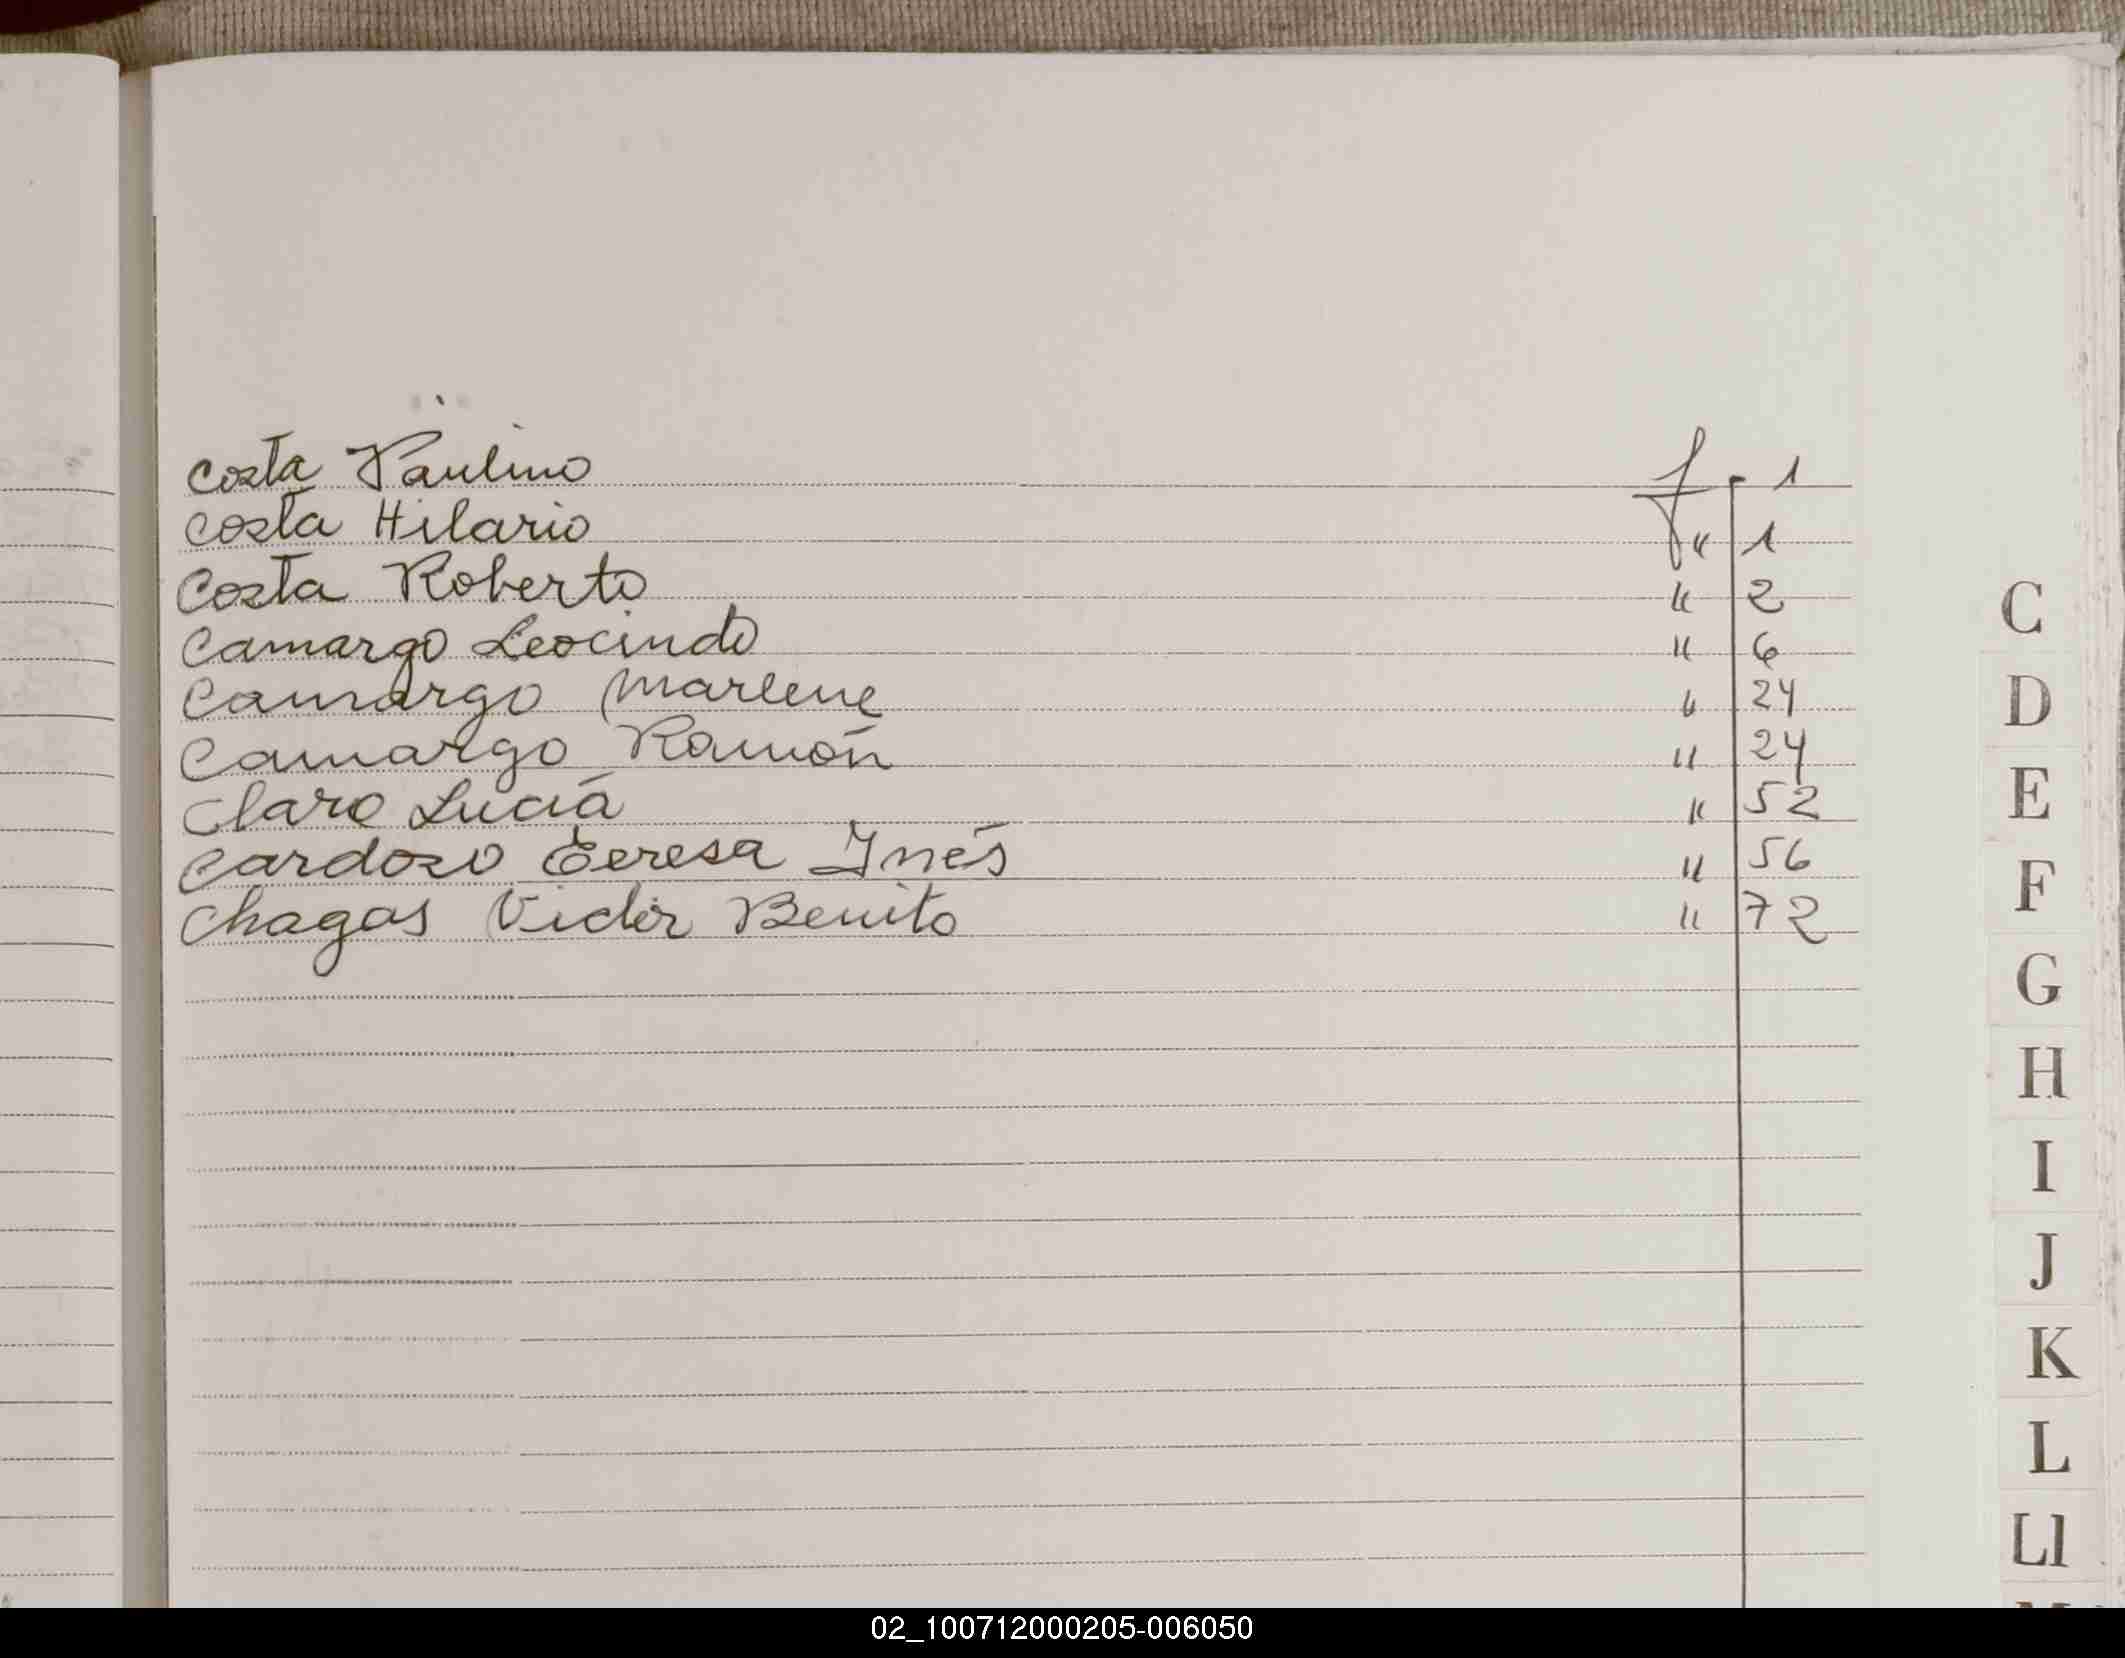 Costa Paulino f. 1
Costa Hilario " 1
Costa Roberto " 2
Camargo Leocindo " 6
Camargo Marlene " 24
Camargo Ramón " 24
Claro Lucía " 52
Cardozo Teresa Inés " 56
Chagas Victor Benito " 72
C
D
E
F
G
H
I
J
K
L
Ll
02_100712000205-006050